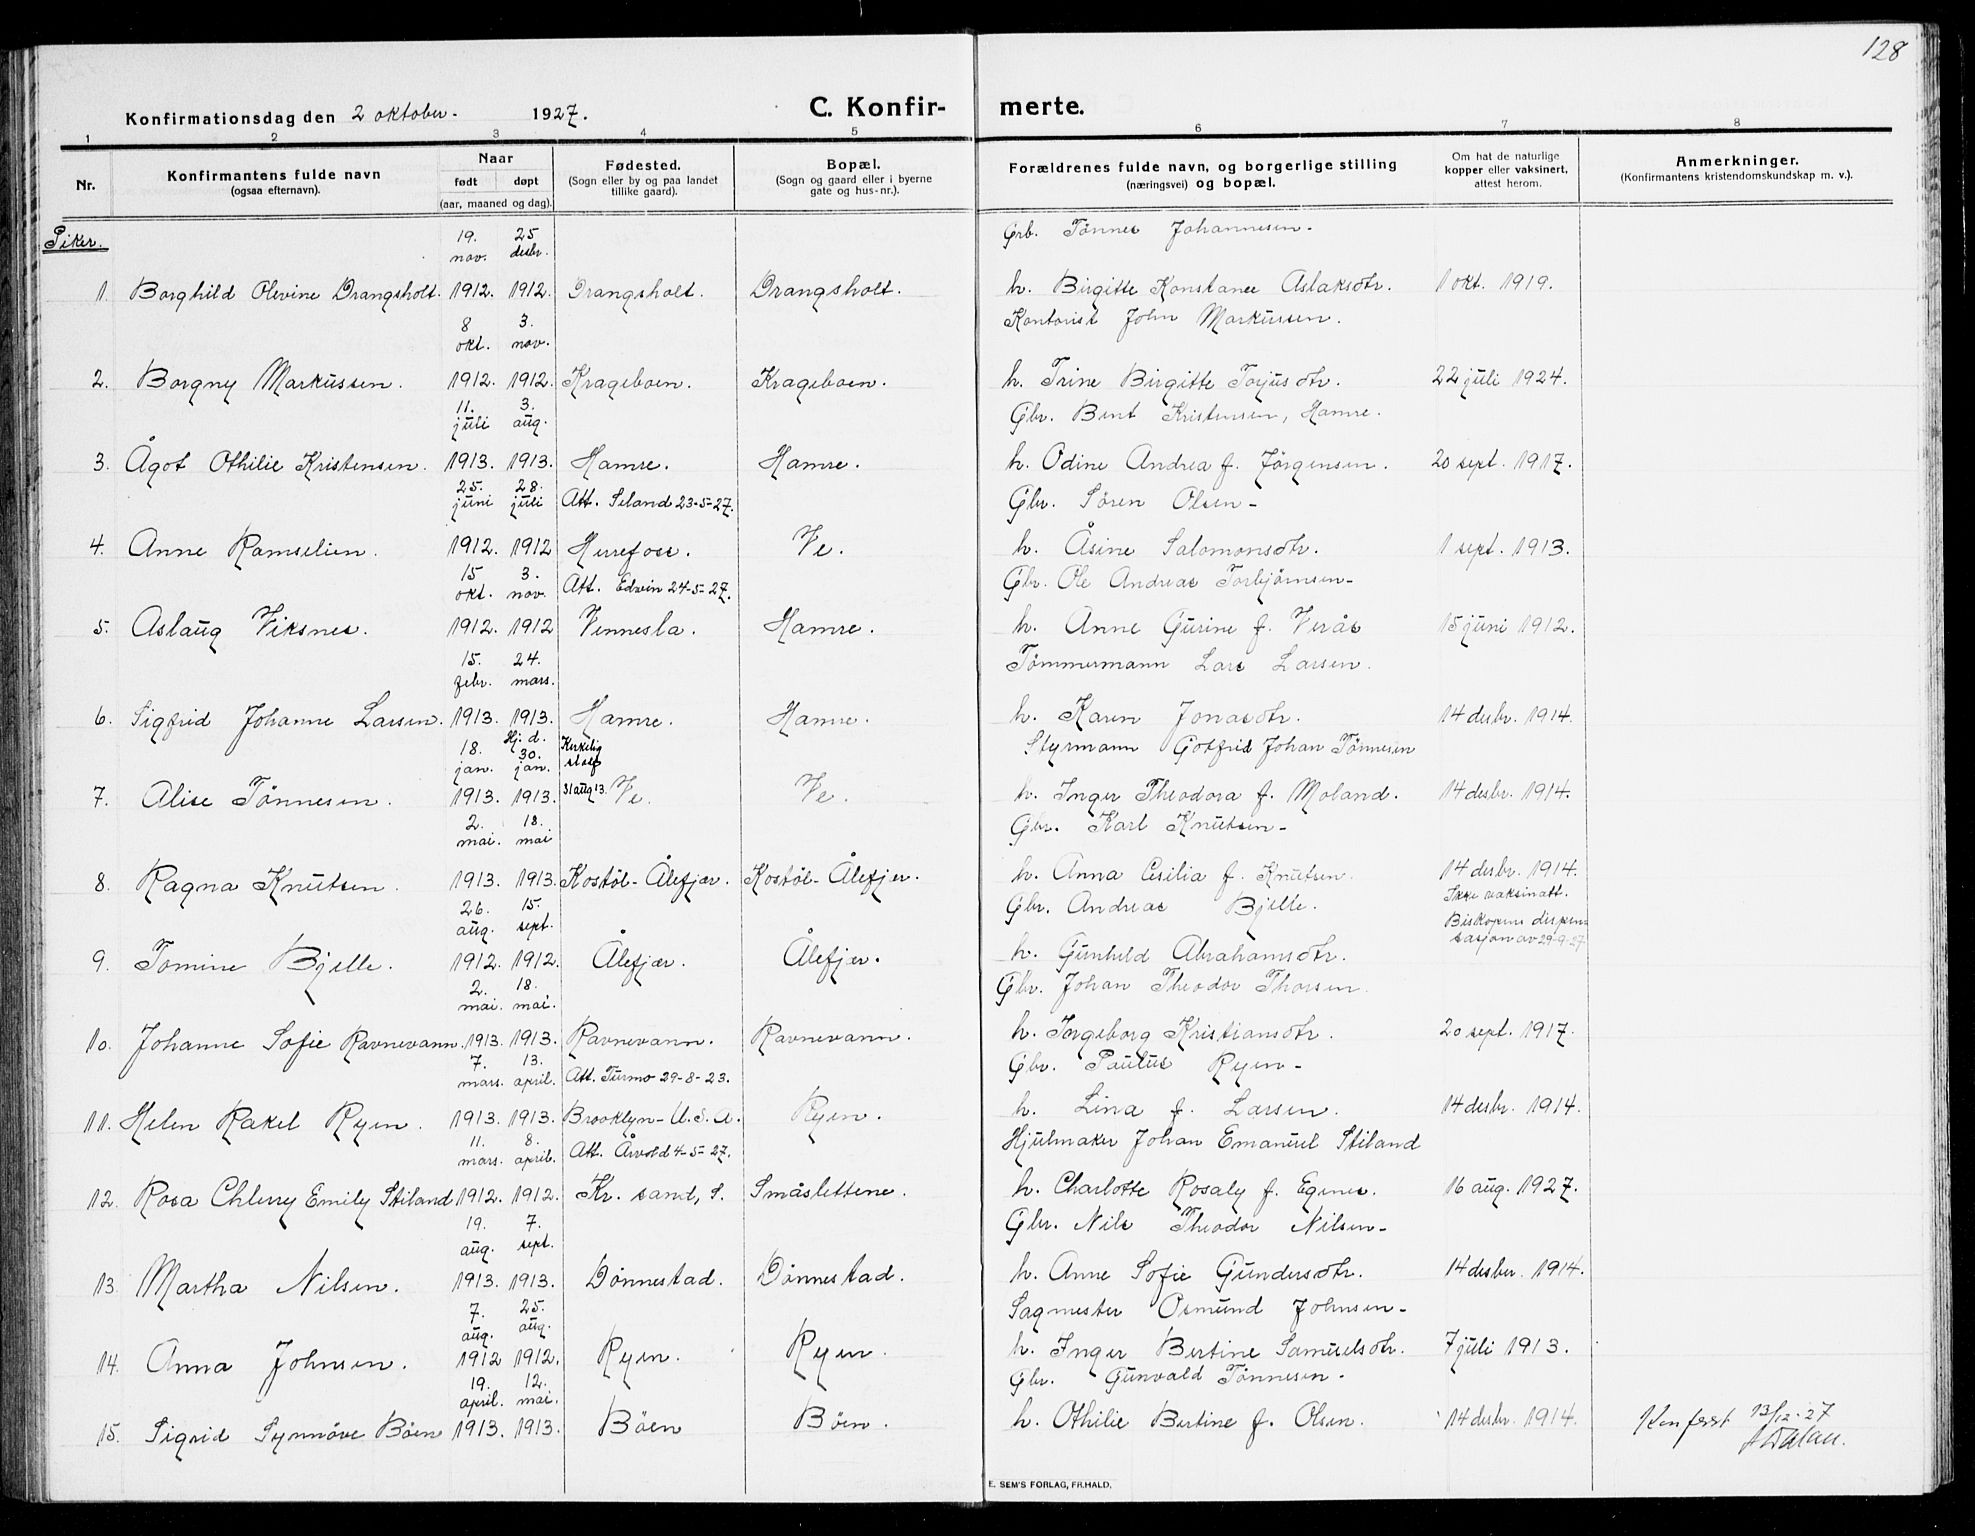 128
Konfirmationsdag den 2 oktober. 1927.
C. Konfir- merte.
1 2 3 4 5 6 7 8
Nr.
Konfirmantens fulde navn
(ogsaa efternavn).
Naar
født døpt
(aar, maaned og dag).
Fødested.
(Sogn eller by og paa landet
tillike gaard).
Bopæl.
(Sogn og gaard eller i byerne
gate og hus-nr.).
Forældrenes fulde navn, og borgerlige stilling
(næringsvei) og bopæl.
Om hat de naturlige
kopper eller vaksinert,
attest herom.
Anmerkninger.
(Konfirmantens kristendomskundskap m. v.).
Piker.
19. nov. 25 desbr. Grb. Tønnes Johannesen-
1. Borghild Olevine Drangsholt. 1912. 1912. Drangsholt. Drangsholt. h. Birgitte Konstance Aslaksdtr. 1 okt. 1919.
8 okt. 3. nov. Kontorist John Markussen.
2. Borgny Markussen. 1912. 1912. Krageboen. Krageboen. h. Trine Birgitte Torjusdtr. 22 juli 1924.
11. juli 3. aug. Gbr. Bent Kristensen, Hamre.
3. Ågot Othilie Kristensen. 1913. 1913. Hamre. Hamre. h. Odine Andrea f. Jørgensen. 20 sept. 1917.
25. juni 28. juli Att. Seland 23-5-27. Gbr. Søren Olsen-
4. Anne Ramselien. 1912. 1912 Herefoss. Ve. h. Åsine Salomonsdtr. 1 sept. 1913.
15 okt. 3. nov. Att. Edvin 24-5-27. Gbr. Ole Andreas Torbjørnsen-
5. Aslaug Viksnes. 1912. 1912 Vennesla. Hamre. h. Anne Gurine f. Verås 15 juni 1912.
15. febr. 24. mars. Tømmermann Lars Larsen.
6. Sigfrid Johanne Larsen. 1913. 1913. Hamre. Hamre. h. Karen Jonasdtr. 14 desbr. 1914.
18. jan. Hj: d. 30. jan. Kirkelig stadf Styrmann Gotfrid Johan Tønnesen
7. Alise Tønnesen. 1913. 1913. 31 aug 13. Ve. Ve. h. Inger Theodora f. Moland. 14 desbr. 1914.
2. mai. 18. mai Gbr. Karl Knutsen-
8. Ragna Knutsen. 1913. 1913. Kostøl-Ålefjær. Kostøl-Ålefjer. h. Anna Cesilia f. Knutsen. 14 desbr. 1914.
26. aug. 15. sept. Gbr. Andreas Bjelle. Ikke vaksinatt.
Biskopens dispen-
sasjon av 29-9-27
9. Tomine Bjelle. 1912. 1912. Ålefjær. Ålefjær. h. Gunhild Abrahamsdtr.
2. mai. 18. mai. Gbr. Johan Theodor Thorsen.
10. Johanne Sofie Ravnevann. 1913. 1913. Ravnevann. Ravnevann. h. Ingeborg Kristiansdtr. 20 sept. 1917.
7. mars. 13. april. Att. Turmo 29-8-23. Gbr. Paulus Ryen-
11. Helen Rakel Ryen. 1913. 1913. Brooklyn-U.S.A. Ryen. h. Lina f. Larsen. 14 desbr. 1914.
11. mars. 8. april. Att. Årvold 4-5-27. Hjulmaker Johan Emanuel Stiland
12. Rosa Chlerry Emily Stiland 1912. 1912. Kr. sand, S. Småslettene. h. Charlotte Rosaly f. Egenes. 16 aug. 1927.
19. aug. 7. sept. Gbr. Nils Theodor Nilsen-
13. Martha Nilsen. 1913. 1913. Dønnestad. Dønnestad. h. Anne Sofie Gundersdtr. 14 desber. 1914.
7. aug. 25. aug. Sagmester Osmund Johnsen-
14. Anna Johnsen. 1912 1912. Ryen. Ryen. h. Inger Bertine Samuelsdtr. 7 juli 1913.
19. april. 12. mai. Gbr. Gunvald Tønnesen-
15. Sigrid Synnøve Bøen 1913. 1913. Bøen Bøen. h. Othilie Bertine f. Olsen. 14 desbr. 1914. 13/12-27
E. SEM'S FORLAG, FR.HALD.